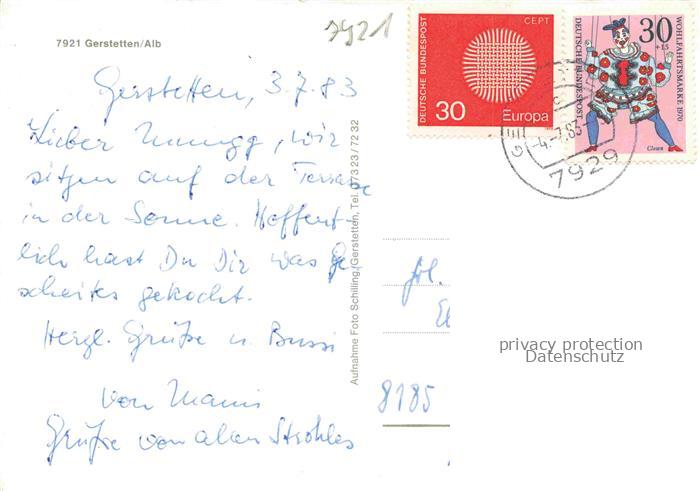 7921 Gerstetten/Alb
7921
Gerstetten, 3.7.83
Lieber, wir
sitzen auf der Terrasse
in der Sonne. Hoffent-
lich hast Du Dir was Ge-
scheites gekocht.
Herzl. Grüße u. Bussi
von Mami
Grüße von allen Strohles
Aufnahme Foto Schilling, Gerstetten, Tel. 0 73 23 / 72 32
DEUTSCHE BUNDESPOST
CEPT
30
Europa
30
+15
WOHLFAHRTSMARKE 1970
DEUTSCHE BUNDESPOST
Clown
-4.-7.83-
7929
8185
privacy protection
Datenschutz